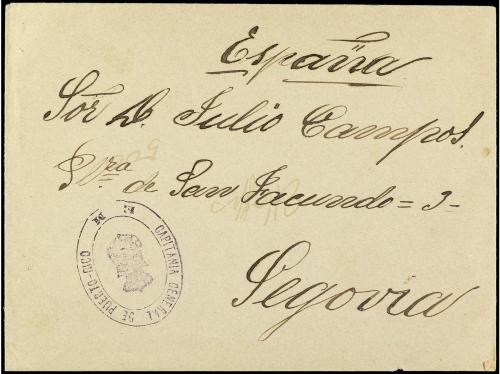 España
Sor D. Julio Campos.
Pl.ra de San Facundo = 3 -
Segovia
CAPITANIA GENERAL DE PUERTO-RICO
E. M.